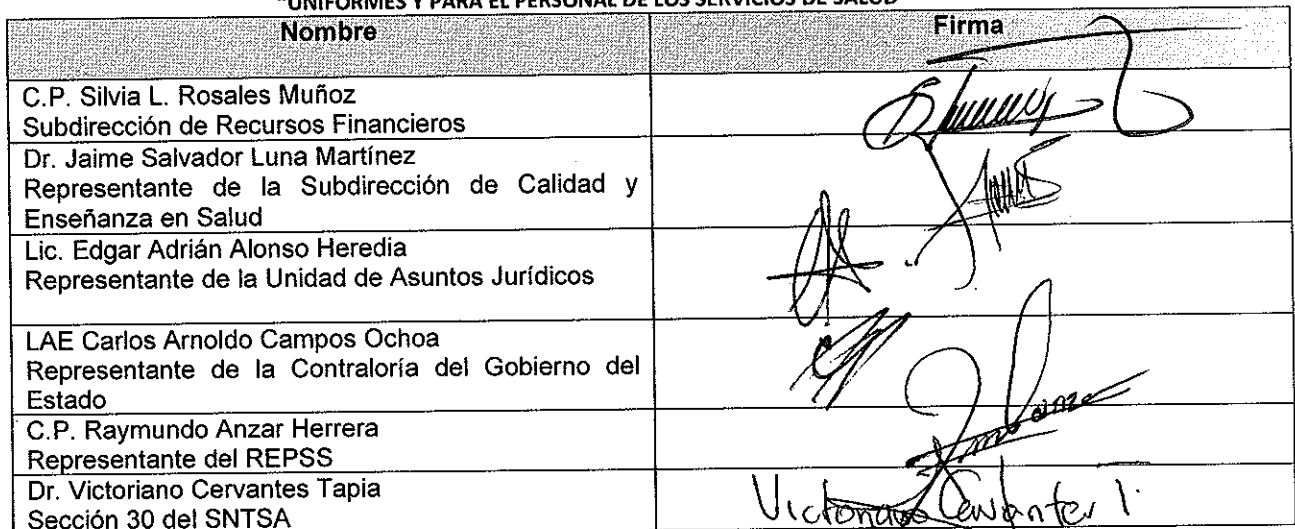 "UNIFORMES Y PARA EL PERSONAL DE LOS SERVICIOS DE SALUD
Nombre Firma
C.P. Silvia L. Rosales Muñoz
Subdirección de Recursos Financieros
Dr. Jaime Salvador Luna Martínez
Representante de la Subdirección de Calidad y
Enseñanza en Salud
Lic. Edgar Adrián Alonso Heredia
Representante de la Unidad de Asuntos Jurídicos
LAE Carlos Arnoldo Campos Ochoa
Representante de la Contraloría del Gobierno del
Estado
C.P. Raymundo Anzar Herrera
Representante del REPSS
Dr. Victoriano Cervantes Tapia
Sección 30 del SNTSA
Victoriano Cervantes T.